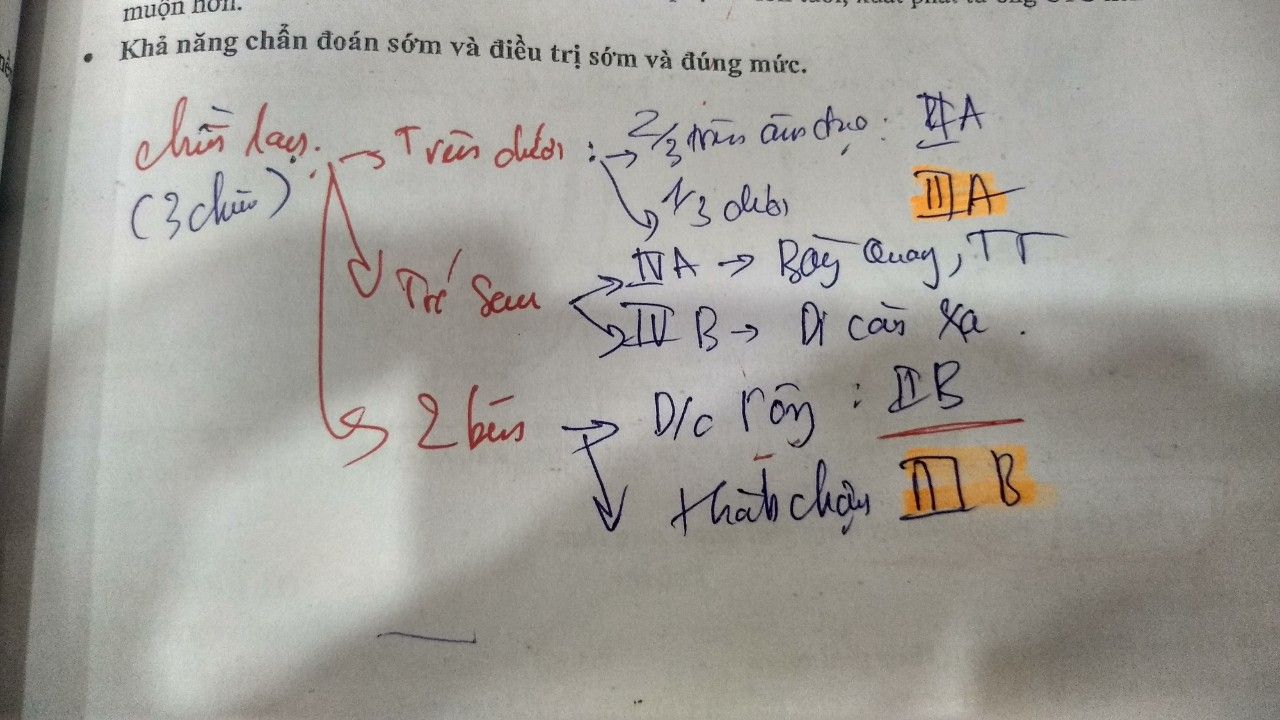 muộn hơn.
• Khả năng chẩn đoán sớm và điều trị sớm và đúng mức.
chiều lan.
(3 chiều)
→ Trên dưới : → 2/3 trên âm đạo : IIA
1/3 dưới IIIA
Trc Sau IVA → Bàng Quang, TT
IVB → Di căn xa .
2 bên → D/c rộng : IIB
thành chậu IIIB